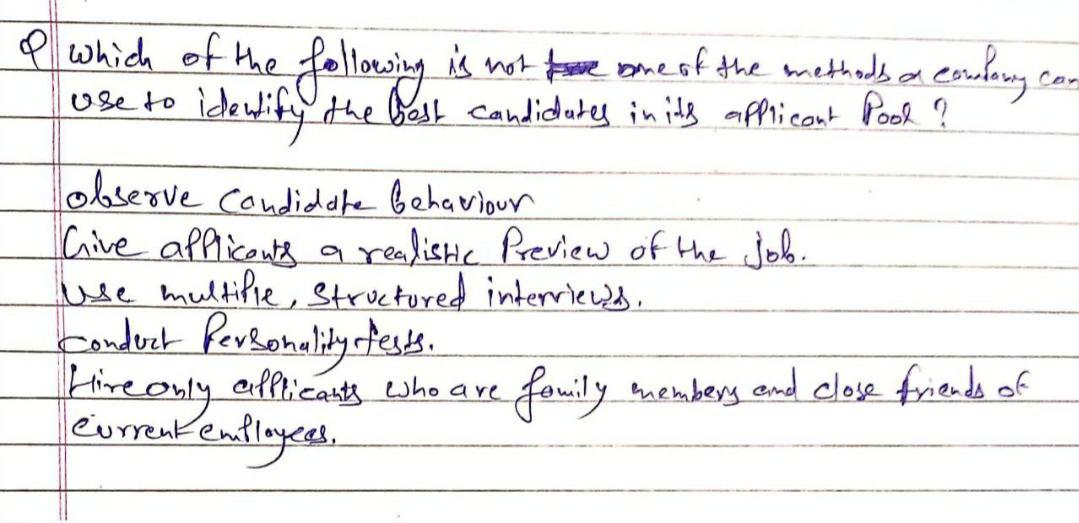 Q which of the following is not one of the methods a company can
use to identify the best candidates in its applicant Pool ?
observe candidate behaviour
Give applicants a realistic Preview of the job.
Use multiple, structured interviews.
Conduct Personality tests.
Hire only applicants who are family members and close friends of
current employees.